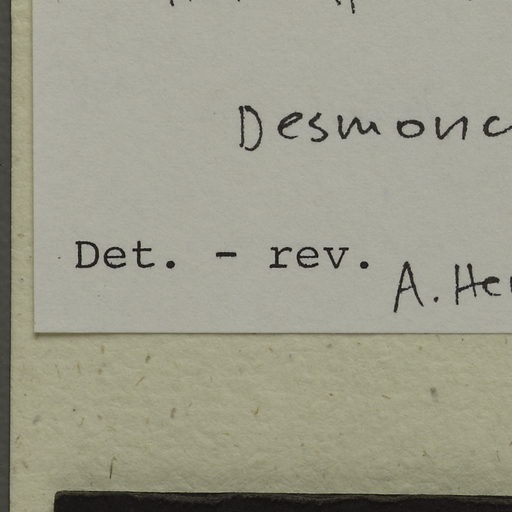 Desmonc
Det. - rev. A. Her